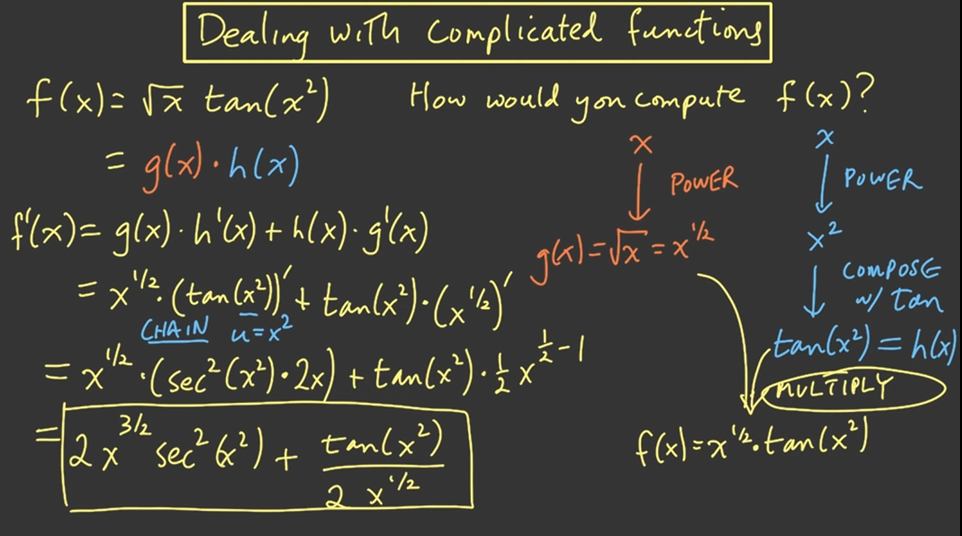 Dealing with complicated functions
f(x) = √x tan(x²)
= g(x) · h(x)
f'(x) = g(x) · h'(x) + h(x) · g'(x)
= x^{1/2} · (tan(x²))' + tan(x²) · (x^{1/2})'
CHAIN u = x²
= x^{1/2} · (sec²(x²) · 2x) + tan(x²) · ½ x^{½ - 1}
= 2 x^{3/2} sec²(x²) + tan(x²) / 2 x^{1/2}
How would you compute f(x)?
x
POWER
g(x) = √x = x^{1/2}
x
POWER
x²
COMPOSE
w/ tan
tan(x²) = h(x)
MULTIPLY
f(x) = x^{1/2} · tan(x²)